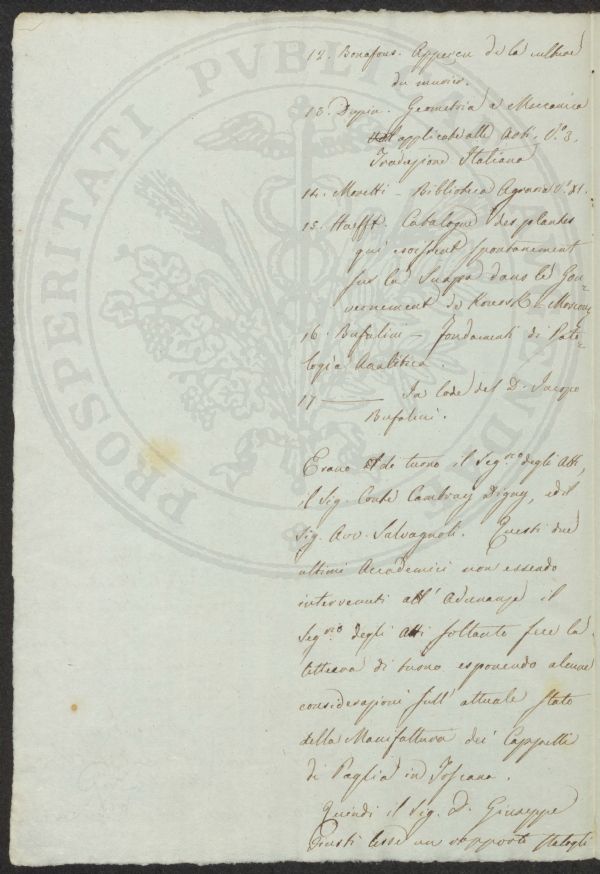 PROSPERITATI PVBLICAE AVGENDAE
12. Bonafous. Apperçu de la culture
du murier.
13. Dupin. Geometria e Meccanica
applicate alle Arti. V.i 3.
Traduzione Italiana
14. Moretti – Biblioteca Agraria V.i
15. Haefft. Catalogue des plantes
qui croissent spontanement
sur la dans le Gou-
vernement de – Moscou
16. Bufalini – fondamenti di Pato-
logia Analitica.
17 ——— In lode del D. Jacopo
Bufalini.
Erano di turno il Seg.rio degli Atti,
il Sig. Conte Cambray Digny, ed il
Sig. Avv. Salvagnoli. Questi due
ultimi Accademici non essendo
intervenuti all' Adunanza il
Seg.rio degli Atti soltanto fece la
lettura di turno esponendo alcune
considerazioni sull' attuale stato
della Manifattura dei Cappelli
di Paglia in Toscana.
Quindi il Sig. D. Giuseppe
Giusti lesse un rapporto statogli